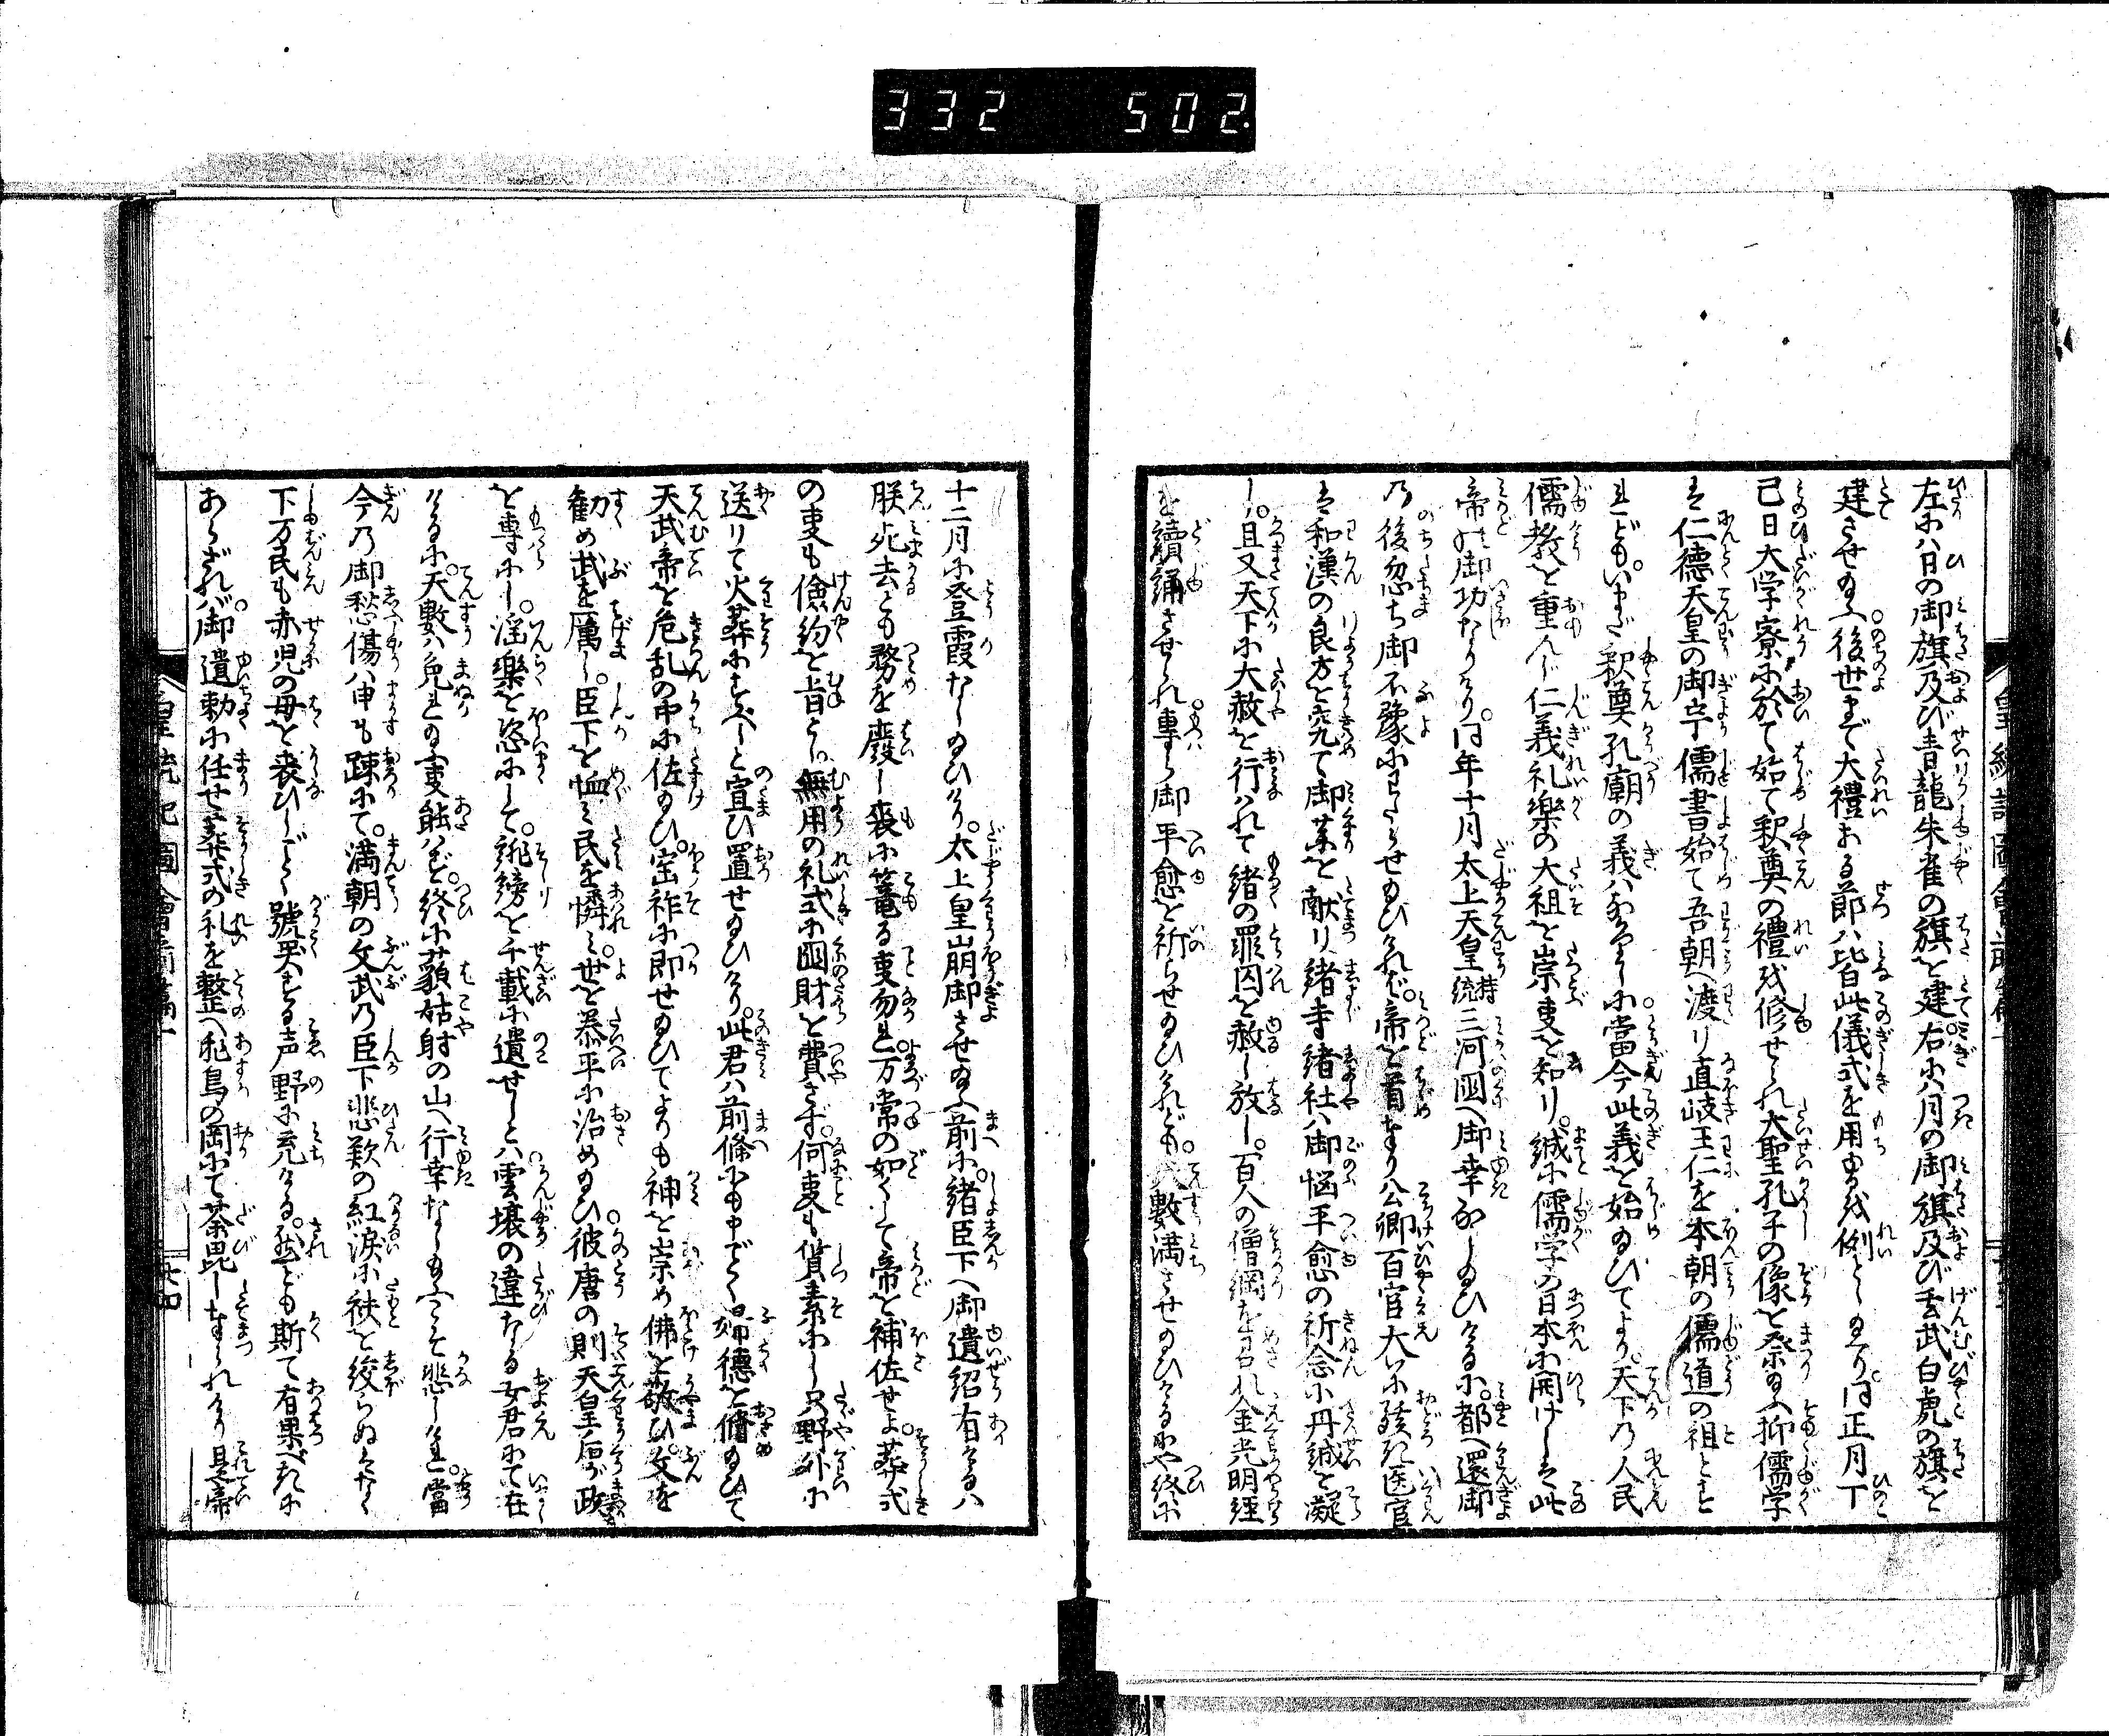 332 502
左にハ日の御旗及び青龍朱雀の旗を建。右にハ月の御旗及び玄武白虎の旗を
建させ給ふ。後世まで大禮ある節ハ皆此儀式を用ゆる例としるせり。同正月丁
己日大学寮に於て始て釈奠の禮を修せられ大聖孔子の像を祭給ふ抑儒学
ハ仁徳天皇の御宇儒書始て吾朝へ渡り直岐王仁を本朝の儒道の祖とす
れども。いまだ釈奠孔廟の義ハなかりしに當今此義を始給ひてより。天下の人民
儒教を重んじ仁義礼樂の大祖を崇事を知り。誠に儒学の日本に開けしハ此
帝の御功なりけり。同年十月太上天皇持統三河國へ御幸ありし給ひけるに。都へ還御
乃後忽ち御不豫にわたらせ給ひけれバ。帝を首奉り公卿百官大いに驚き医官
ハ和漢の良方を究て御薬を献り緒寺緒社ハ御悩平愈の祈念に丹誠を凝
し。且又天下に大赦を行ハれて緒の罪囚を赦し放し。百人の僧綱を召れ金光明経
を續誦させられ専ら御平愈を祈らせ給ひけれども。天數満させ給ひけるにや終に
十二月に登霞なし給ひけり。太上皇崩御させ給ふ前に。緒臣下へ御遺紹有けるハ
朕死去とも務を廢し喪に篭る事勿れ万常の如くして帝を補佐せよ。葬式
の事も儉約を旨とし。無用の礼式に國財を費さず。何事も質素にし只野外に
送りて火葬にすべしと宣ひ置せ給ひけり。此君ハ前條にも申ごとく婦徳を脩給ひて
天武帝を危乱の中に佐給ひ。宝祚に即せ給ひてよりも神を崇め佛を敬ひ。文を
勧め武を厲し。臣下を恤ミ民を憐ミ。世を泰平に治め給ひ彼唐の則天皇后が政
を専にし。滛樂を恣にして。誹謗を千載に遺せしとハ雲壌の違なる女君にて在
けるに。天數ハ免れ給ふ事能ハず。終に藐姑射の山へ行幸なし給ふこそ悲しけれ。當
今乃御愁傷ハ申も踈にて。満朝の文武乃臣下悲歎の紅涙に袂を絞らぬもなく
下万民も赤児の母を喪ひしごとく號哭する声野に充ける。然ども斯て有果べきに
あらざれバ。御遺勅に任せ葬式の礼を整へ飛鳥の岡にて荼毘し奉られけり是帝